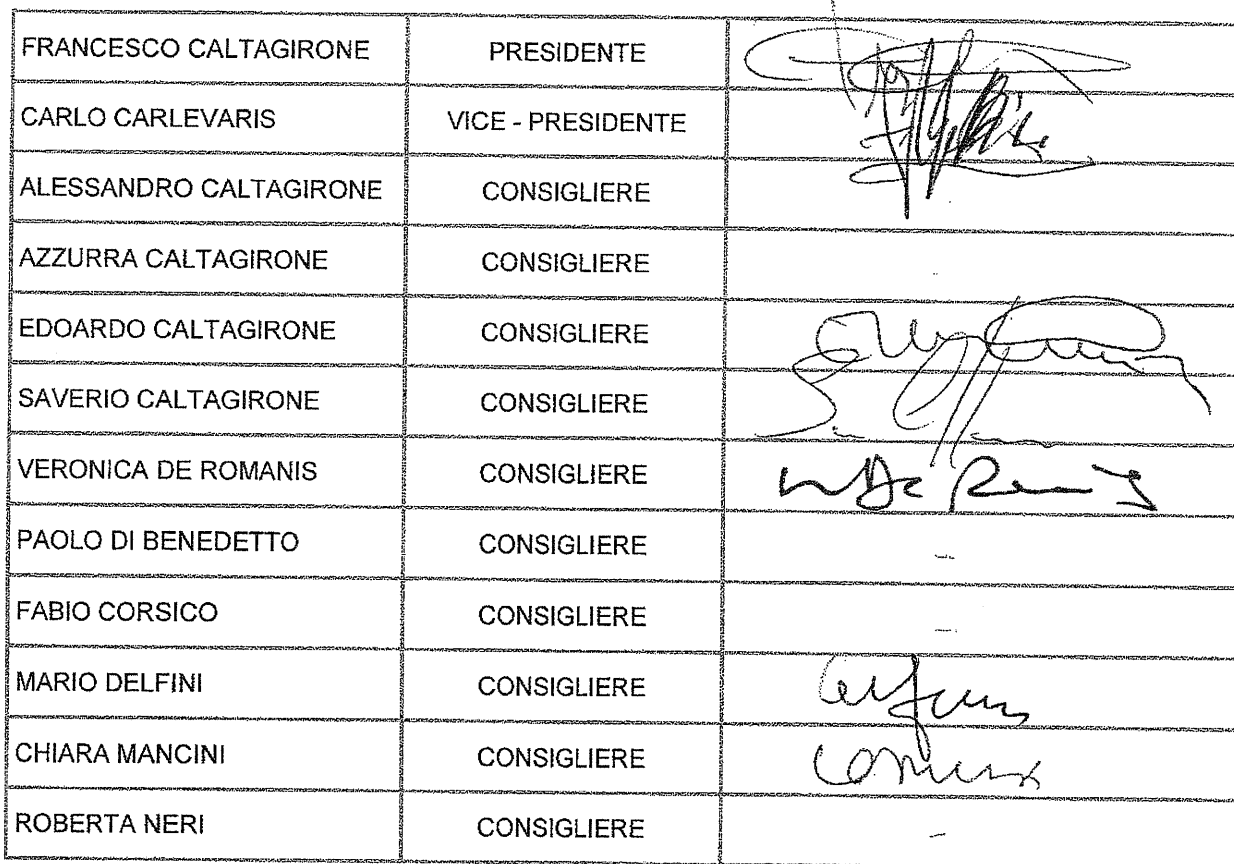 FRANCESCO CALTAGIRONE PRESIDENTE
CARLO CARLEVARIS VICE - PRESIDENTE
ALESSANDRO CALTAGIRONE CONSIGLIERE
AZZURRA CALTAGIRONE CONSIGLIERE -
EDOARDO CALTAGIRONE CONSIGLIERE
SAVERIO CALTAGIRONE CONSIGLIERE
VERONICA DE ROMANIS CONSIGLIERE
PAOLO DI BENEDETTO CONSIGLIERE -
FABIO CORSICO CONSIGLIERE -
MARIO DELFINI CONSIGLIERE
CHIARA MANCINI CONSIGLIERE
ROBERTA NERI CONSIGLIERE -